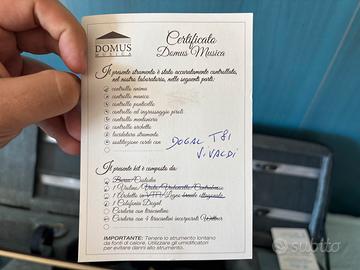 DOMUS
MUSICA
Certificato
Domus Musica
Il presente strumento è stato accuratamente controllato,
nel nostro laboratorio, nelle seguenti parti:
controllo anima
controllo manico
controllo ponticello
controllo ed ingrassaggio piroli
controllo mentoniera
controllo archetto
lucidatura strumento
sostituzione corde con
DOGAL T81
VIVALDI
Il presente kit è composto da:
Custodia
1 Violino
1 Archetto in Legno
1 Colofonia Dogal
Cordiera con tiracantino
Cordiera con 4 tiracantini incorporati
IMPORTANTE: Tenere lo strumento lontano
da fonti di calore. Utilizzare gli umidificatori
per evitare danni allo strumento.
subito